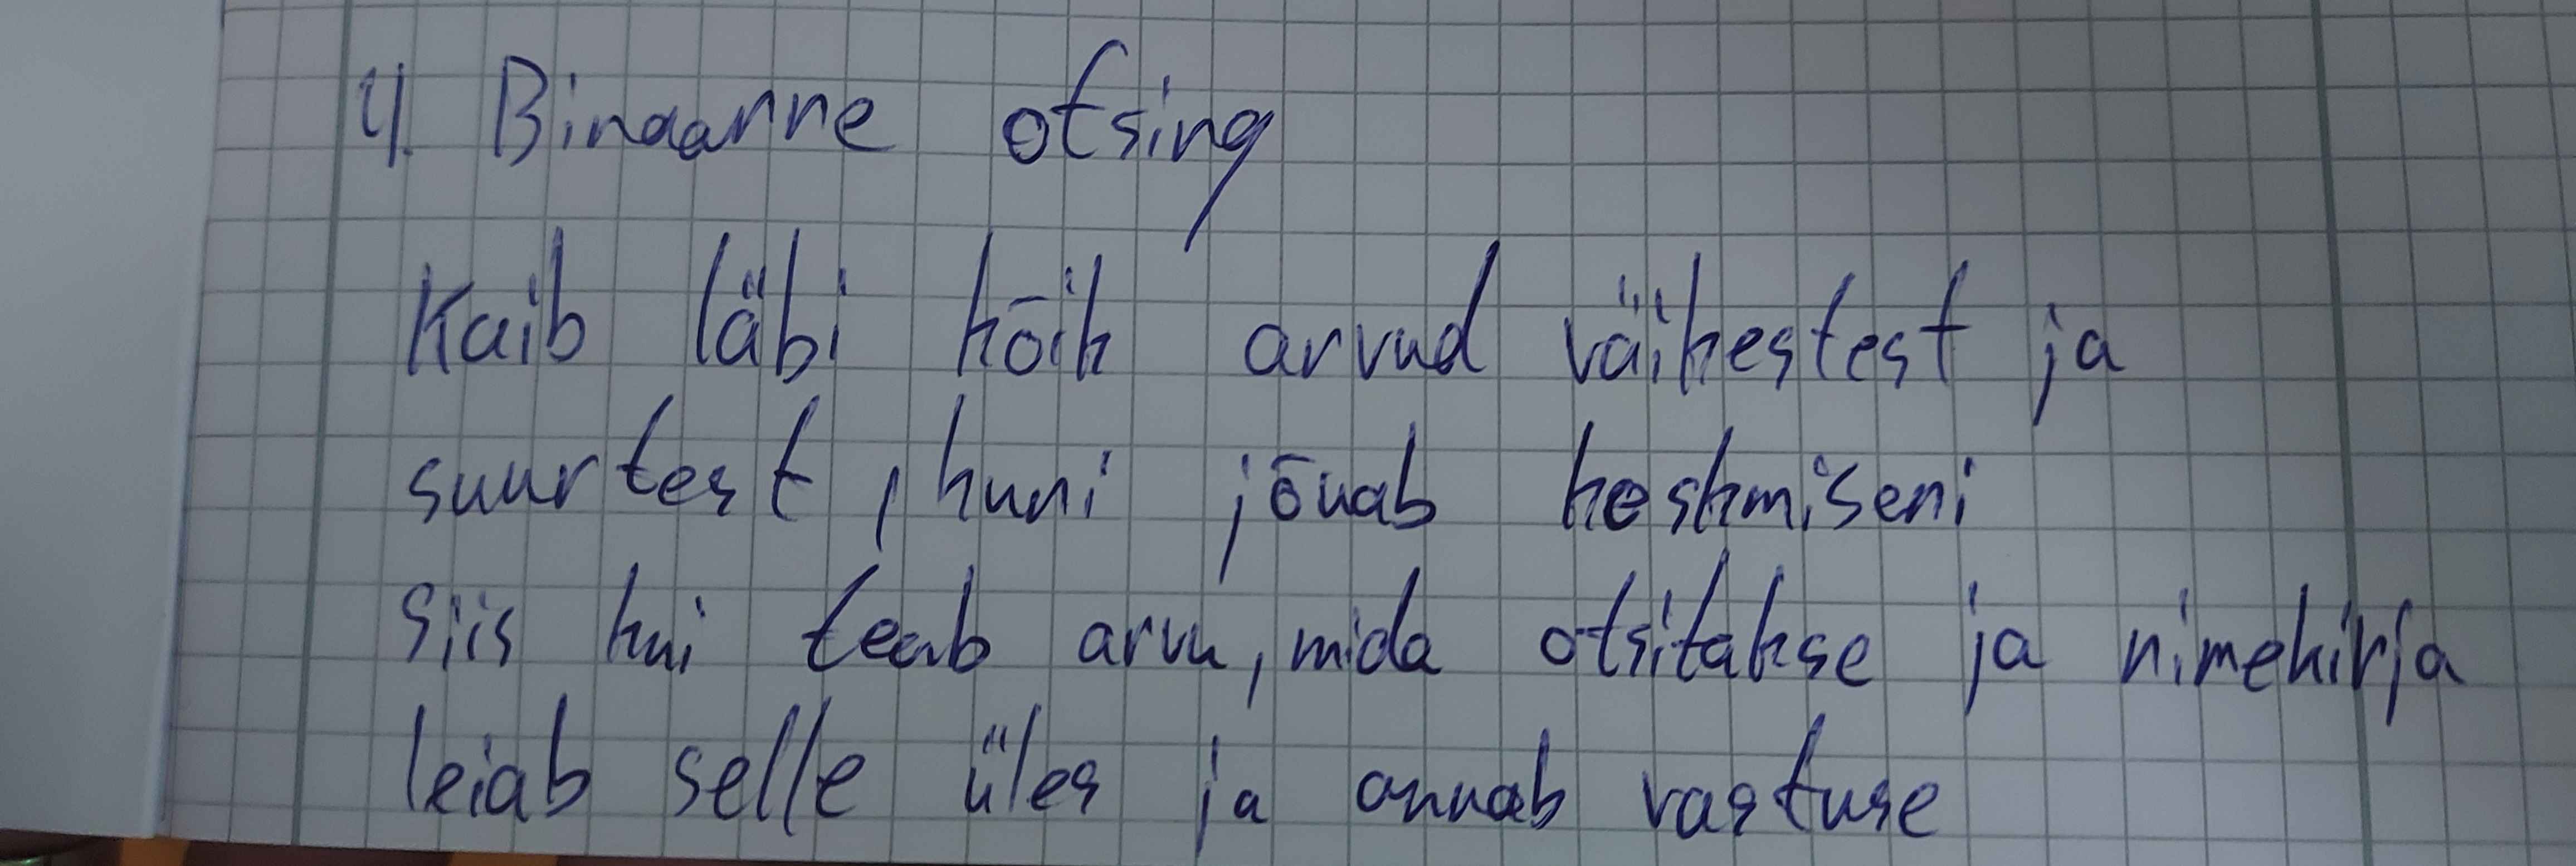 4. Binaarne otsing
Kaib läbi kõik arvud väikestest ja
suurtest, kuni jõuab keskmiseni
Siis kui teab arvu, mida otsitakse ja nimekirja
leiab selle üles ja annab vastuse